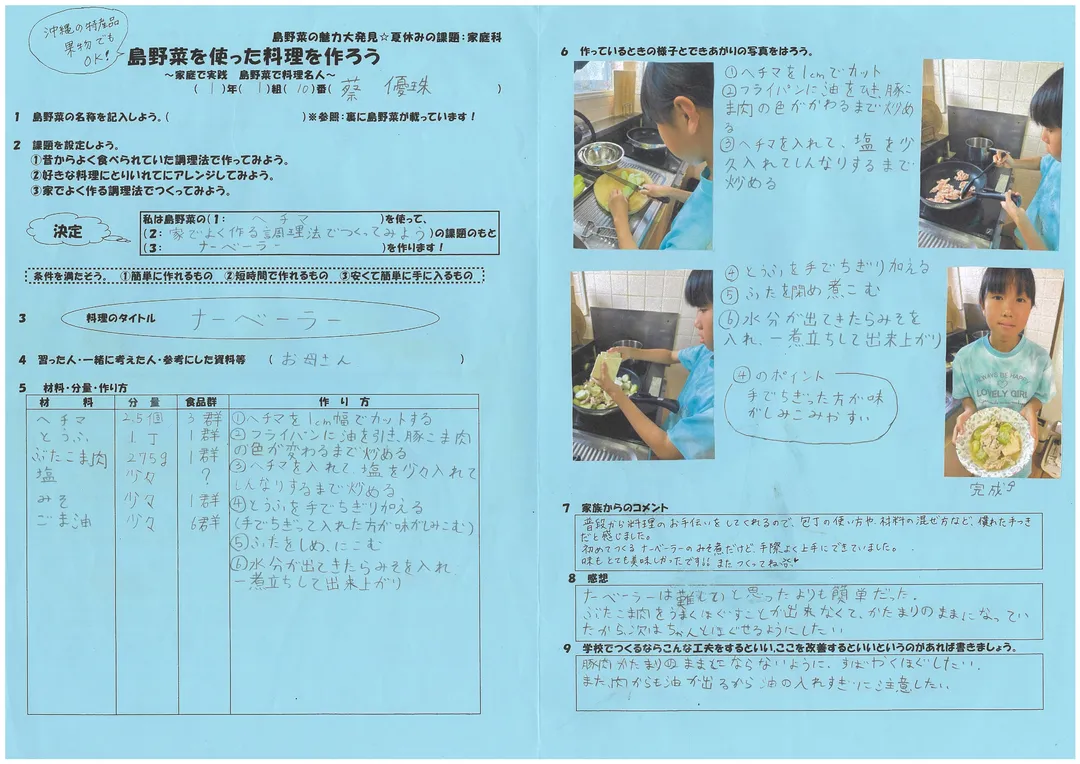 沖縄の特産品
果物でも
OK!
島野菜の魅力大発見☆夏休みの課題:家庭科
島野菜を使った料理を作ろう
～家庭で実践 島野菜で料理名人～
( 1 )年( 1 )組( 10 )番( 蔡 優珠 )
1 島野菜の名称を記入しよう。( )※参照:裏に島野菜が載っています!
2 課題を設定しよう。
①昔からよく食べられていた調理法で作ってみよう。
②好きな料理にとりいれてにアレンジしてみよう。
③家でよく作る調理法でつくってみよう。
決定
私は島野菜の(1: ヘチマ )を使って、
(2: 家でよく作る調理法でつくってみよう )の課題のもと
(3: ナーベーラー )を作ります!
条件を満たそう。 ①簡単に作れるもの ②短時間で作れるもの ③安くて簡単に手に入るもの
3 料理のタイトル ナーベーラー
4 習った人・一緒に考えた人・参考にした資料等 ( お母さん )
5 材料・分量・作り方
材 料 分 量 食品群 作 り 方
ヘチマ 2.5個 3群 ①ヘチマを1cm幅でカットする
とうふ 1丁 1群 ②フライパンに油を引き、豚こま肉
ぶたこま肉 275g 1群 の色が変わるまで炒める
塩 少々 ? ③ヘチマを入れて、塩を少々入れて
しんなりするまで炒める
みそ 少々 1群 ④とうふを手でちぎり加える
ごま油 少々 6群 (手でちぎって入れた方が味がしみこむ)
⑤ふたをしめ、にこむ
⑥水分が出てきたらみそを入れ
一煮立ちして出来上がり
6 作っているときの様子とできあがりの写真をはろう。
①ヘチマを1cmでカット
②フライパンに油をひき、豚こ
ま肉の色がかわるまで炒め
る
③ヘチマを入れて、塩を少
々入れてしんなりするまで
炒める
④とうふを手でちぎり加える
⑤ふたを閉め煮こむ
⑥水分が出てきたらみそを
入れ、一煮立ちして出来上がり
④のポイント
手でちぎった方が味
がしみこみやすい
LOVELY GIRL
完成
7 家族からのコメント
普段から料理のお手伝いをしてくれるので、包丁の使い方や、材料の混ぜ方など、慣れた手つき
だと感じました。
初めてつくるナーベーラーのみそ煮だけど、手際よく上手にできていました。
味もとても美味しかったです!! またつくってね
8 感想
ナーベーラーは難しいと思ったよりも簡単だった。
ぶたこま肉をうまくほぐすことが出来なくて、かたまりのままになってい
たから、次はちゃんとほぐせるようにしたい
9 学校でつくるならこんな工夫をするといい、ここを改善するといいというのがあれば書きましょう。
豚肉がかたまりのままにならないように、すばやくほぐしたい。
また、肉からも油が出るから油の入れすぎに注意したい。